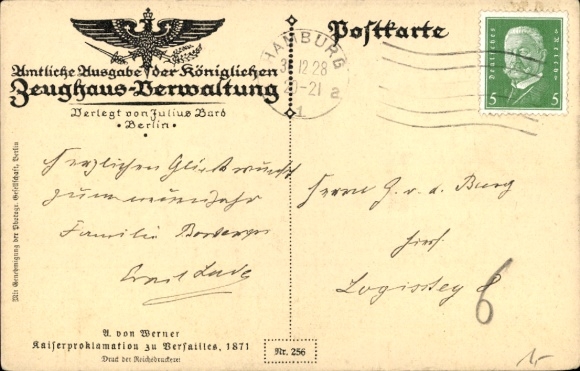 Amtliche Ausgabe der Königlichen
Zeughaus-Verwaltung
Verlegt von Julius Bard
• Berlin •
Postkarte
HAMBURG
12.28
-21 a
1
Deutsches Reich
5 5
Herzlichen Glückwunsch
zum neuen Jahr
Familie
Emil
Herrn G. v. d. Burg
hier
8
6
Mit Genehmigung der Photogr. Gesellschaft, Berlin
A. von Werner
Kaiserproklamation zu Versailles, 1871
Druck der Reichsdruckerei
Nr. 256